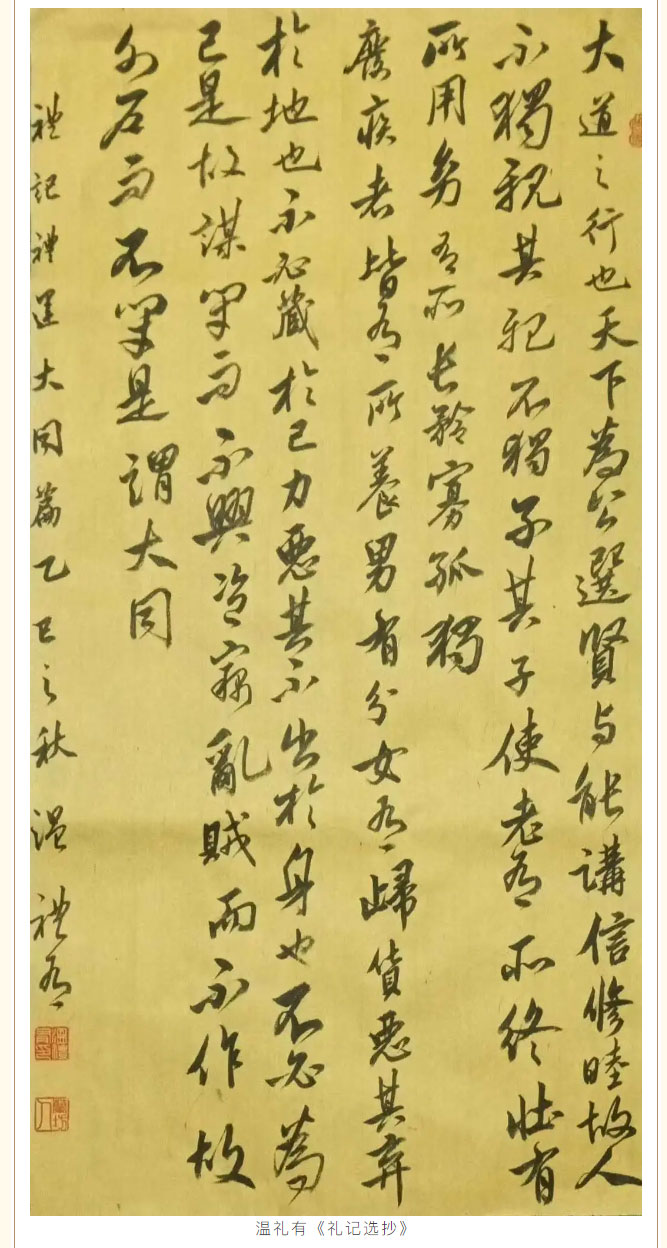 大道之行也天下為公選賢与能講信修睦故人
不獨親其親不獨子其子使老有所終壯有
所用幼有所长矜寡孤獨
廢疾者皆有所養男有分女有歸貨惡其弃
於地也不必藏於己力惡其不出於身也不必為
己是故謀閉而不興盗竊亂賊而不作故
外户而不閉是謂大同
禮記禮運大同篇乙巳之秋 温禮有
温礼有《礼记选抄》